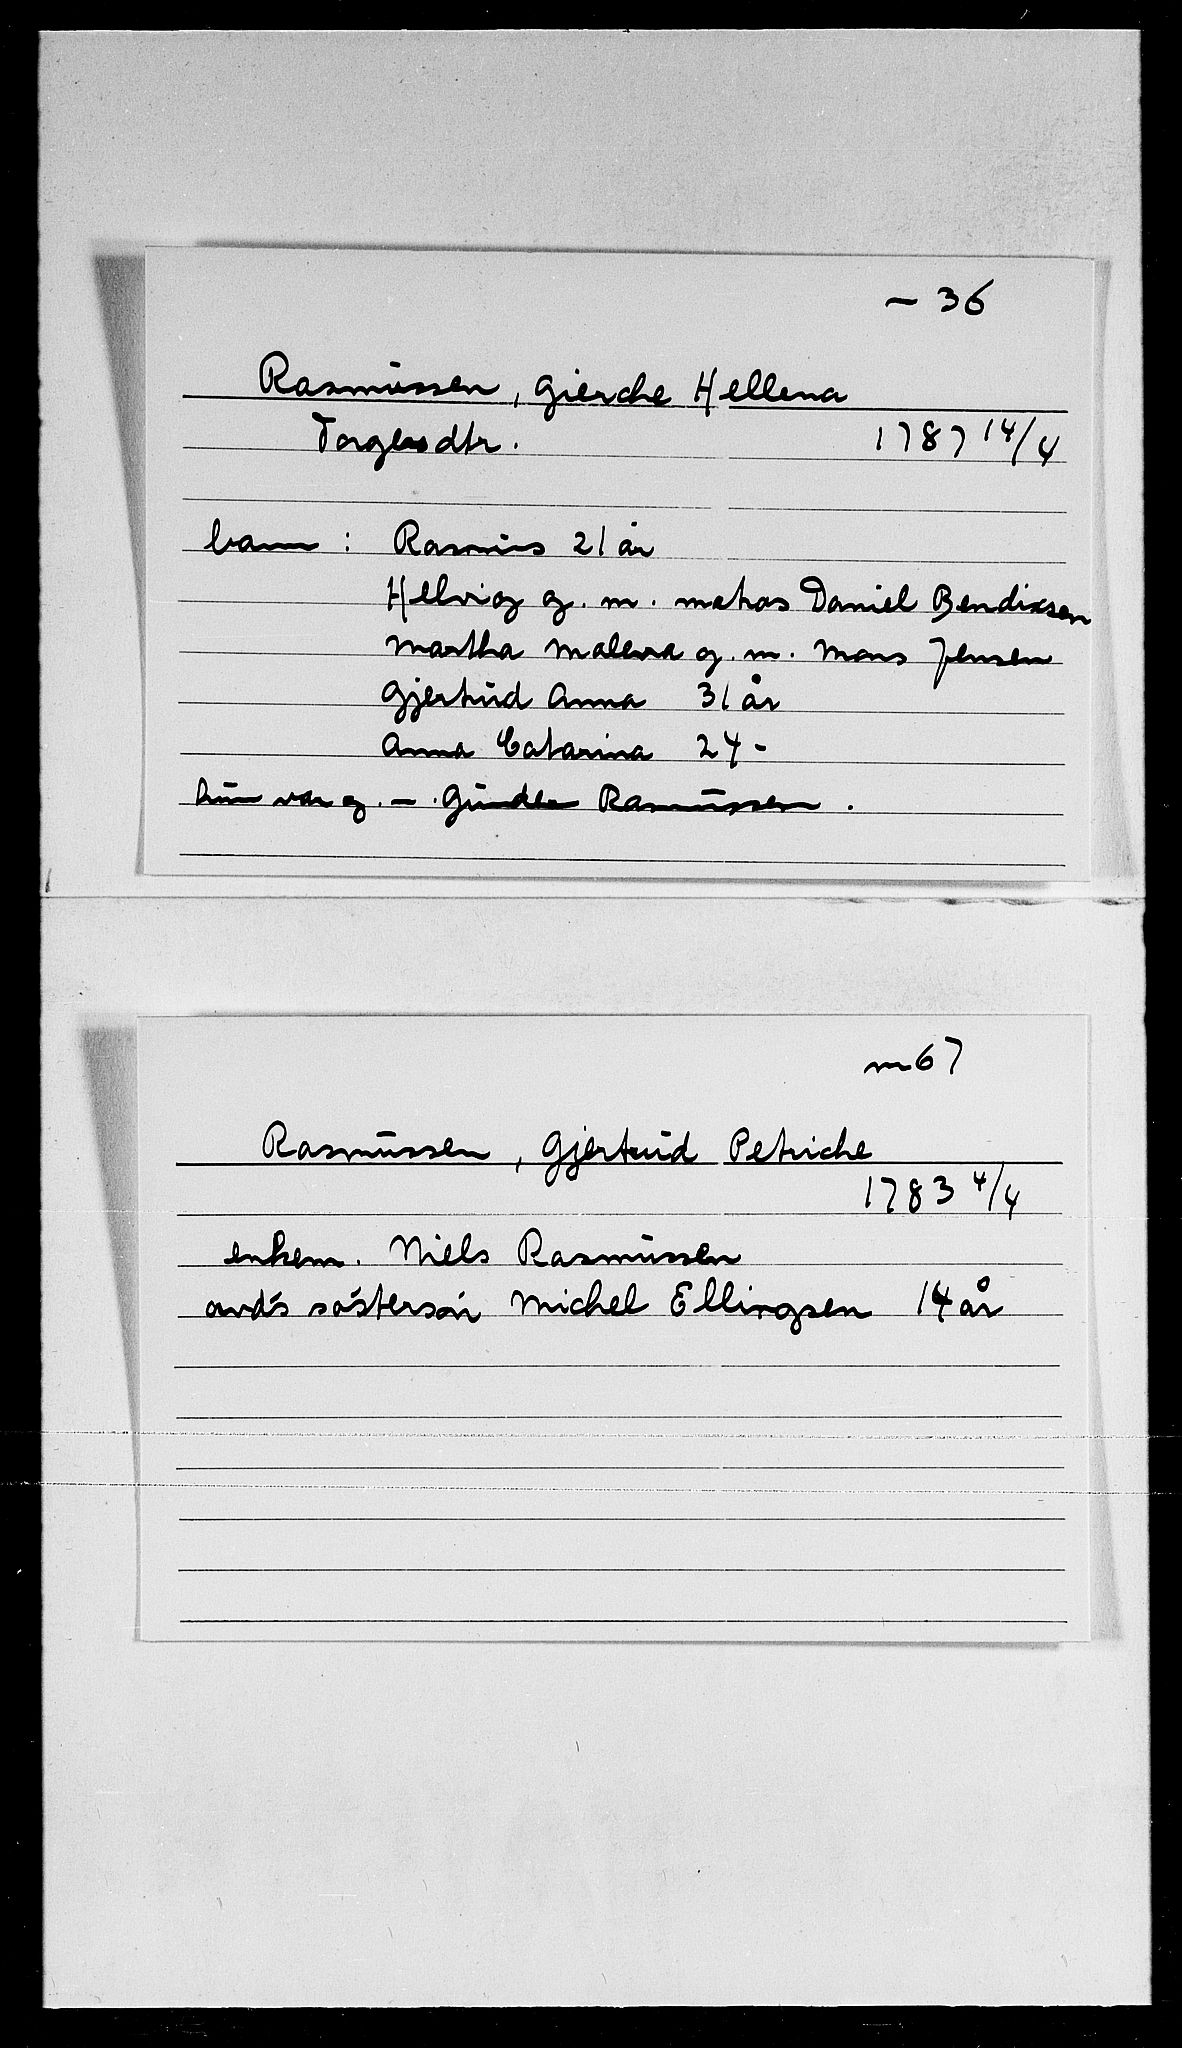 – 36
Rasmussen, Gierche Hellena
Torgersdtr. 1787 14/4
barn : Rasmus 21 år
Helvig g. m. matros Daniel Bendixsen
Martha Malena g. m. Mons Jensen
Gjertrud Anna 31 år
Anna Catarina 24 -
hun var g. – Gunder Rasmussen.
m 67
Rasmussen, Gjertrud Petriche
1783 4/4
enkem. Niels Rasmussen
avd's søstersøn Michel Ellingsen 14 år